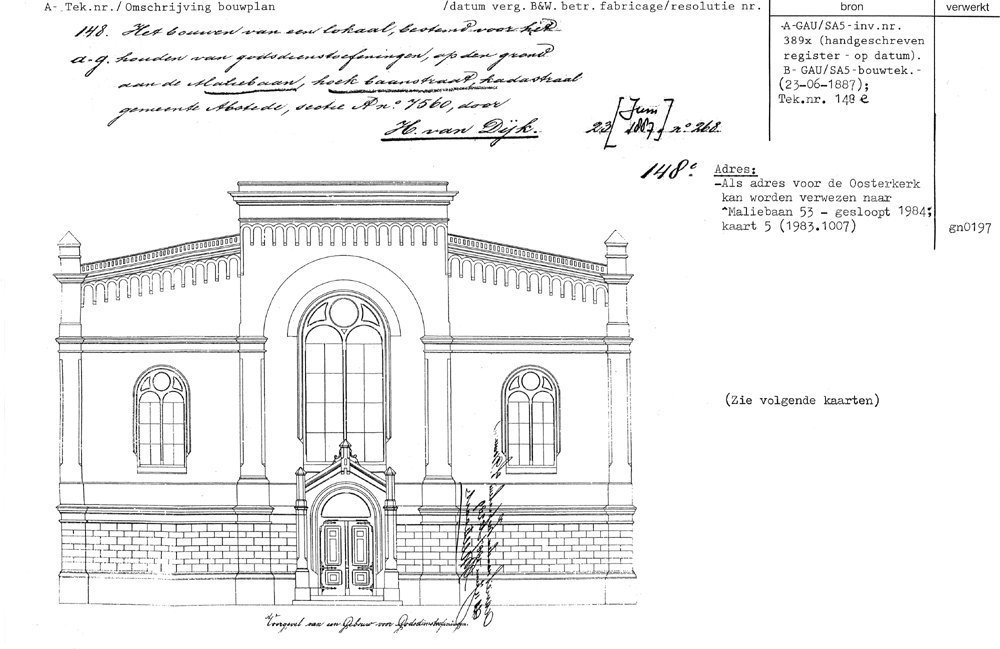 A- Tek.nr./Omschrijving bouwplan /datum verg. B&W.betr.fabricage/resolutie nr. bron verwerkt
148. Het bouwen van een lokaal, bestemd voor het
a-g. houden van godsdienstoefeningen, op den grond
aan de Maliebaan, hoek baanstraat, kadastraal
gemeente Abstede, sectie A no. 7560, door
H. van Dijk.
23 [Juni 1887], no. 268.
-A-GAU/SA5-inv.nr.
389x (handgeschreven
register - op datum).
B- GAU/SA5-bouwtek.-
(23-06-1887);
Tek.nr. 148 e
148e
Adres:
-Als adres voor de Oosterkerk
kan worden verwezen naar
^Maliebaan 53 - gesloopt 1984;
kaart 5 (1983.1007)
gn0197
(Zie volgende kaarten)
Voorgevel van een Gebouw voor Godsdienstoefeningen.